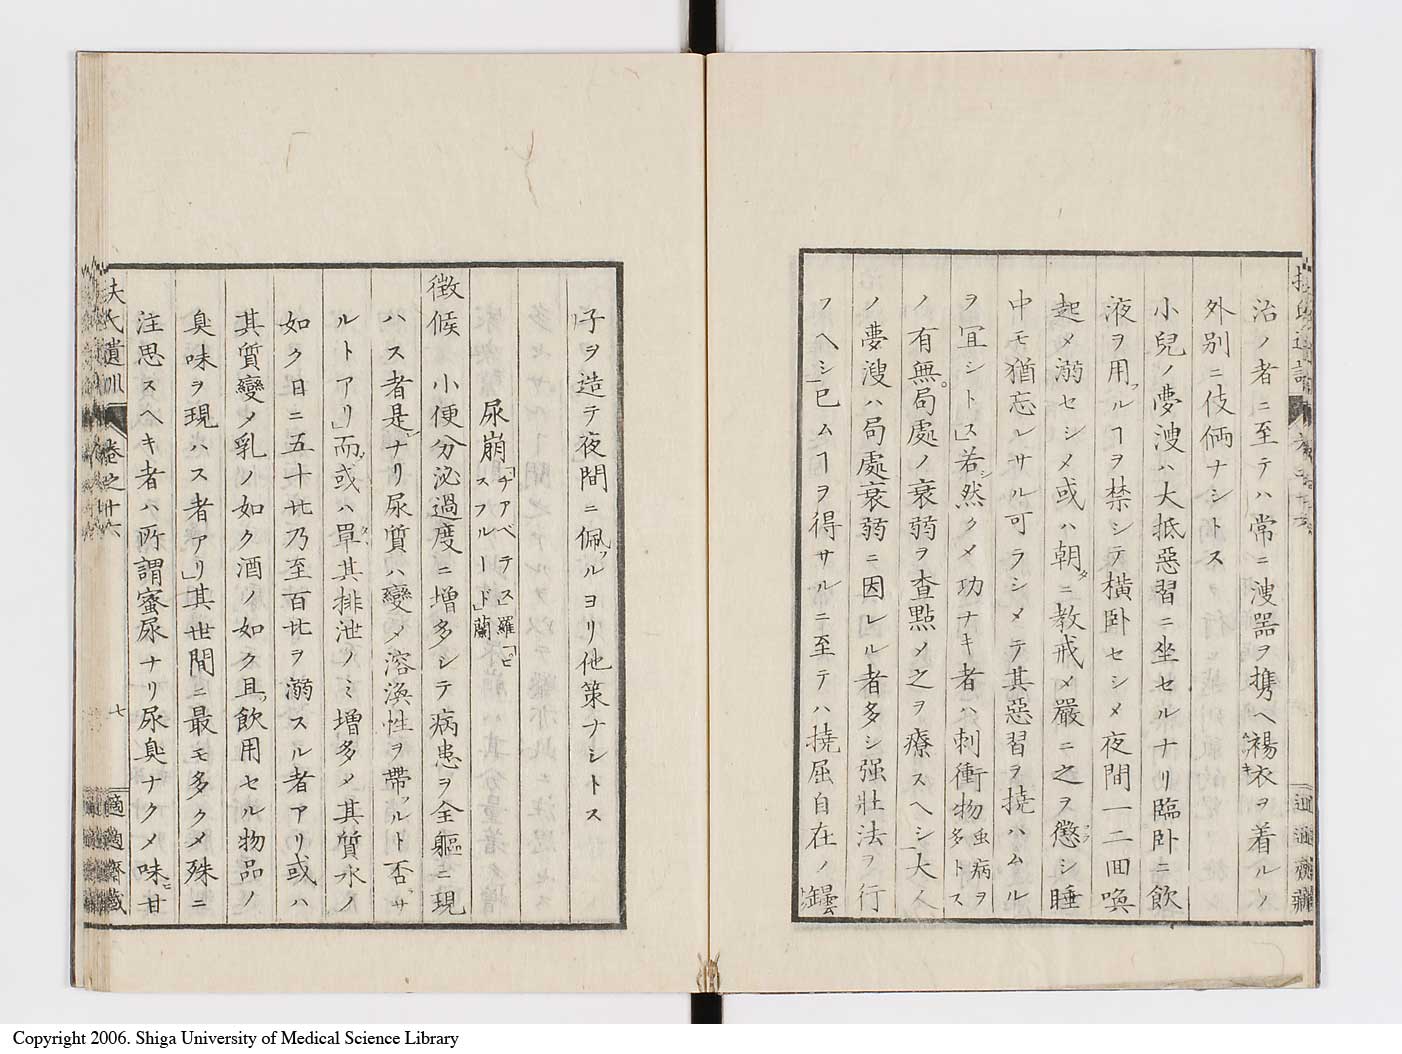 治ノ者ニ至テハ常ニ溲器ヲ携ヘ褥衣ヲ着ルノ
外別ニ伎倆ナシトス
小兒ノ夢溲ハ大抵惡習ニ坐セルナリ臨臥ニ飲
液ヲ用フルヿヲ禁シテ横臥セシメ夜間一二回喚
起メ溺セシメ或ハ朝タニ教戒メ嚴ニ之ヲ懲シ睡
中モ猶忘レサル可ラシメテ其惡習ヲ撓ハムル
ヲ冝シトス」若シ然クメ功ナキ者ハ刺衝物虫病ヲ多トス
ノ有無。局處ノ衰弱ヲ査點メ之ヲ療スヘシ」大人
ノ夢溲ハ局處衰弱ニ因レル者多シ强壯法ヲ行
フヘシ」已ムヿヲ得サルニ至テハ撓屈自在ノ罎
子ヲ造テ夜間ニ佩フルヨリ他策ナシトス
尿崩「ヂアベテス」羅「ピスフルード」蘭
徴候 小便分泌過度ニ増多シテ病患ヲ全軀ニ現
ハス者是ナリ尿質ハ變メ溶渙性ヲ帶フルト否サ
ルトアリ」而或ハ單タ其排泄ノミ増多メ其質水ノ
如ク日ニ五十卄乃至百卄ヲ溺スル者アリ或ハ
其質變メ乳ノ如ク酒ノ如ク且飲用セル物品ノ
臭味ヲ現ハス者アリ」其世間ニ最モ多クメ殊ニ
注思スヘキ者ハ所謂蜜尿ナリ尿臭ナクメ味ヒ甘
扶氏遺訓 卷之十六 七 適適齋藏
Copyright 2006. Shiga University of Medical Science Library